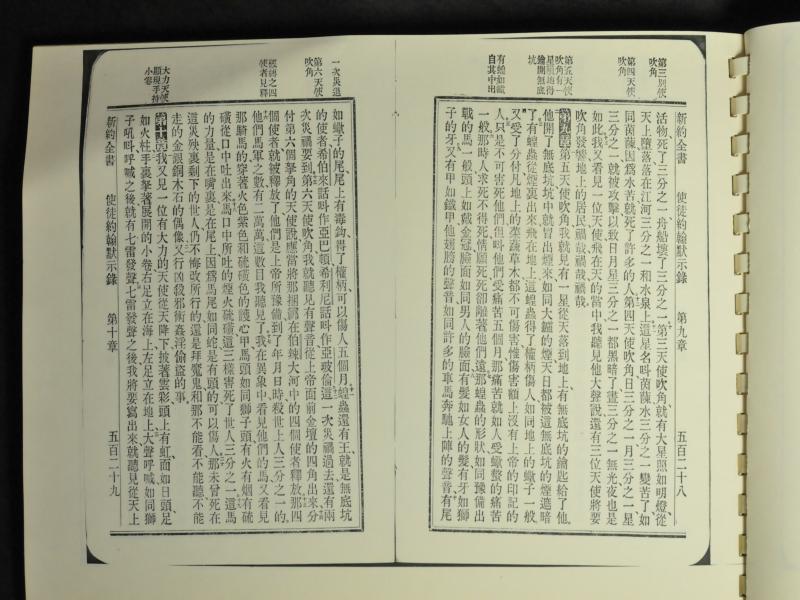 新約全書 使徒約翰默示錄 第九章 五百二十八
第三位天使
吹角
第四天使
吹角
第五天使
吹角有一
星隕地得
鑰開無底
坑
有蝗如蠍
自其中出
活物死了三分之一舟船壞了三分之一第三天使吹角就有大星照如明燈從
天上墮落落在江河三分之一和水泉上這星名呌茵蔯水三分之一變苦了如
同茵蔯因爲水苦就死了許多的人第四天使吹角日三分之一月三分之一星
三分之一就被攻擊以致日月星三分之一都黑暗了晝三分之一無光夜也是
如此我又看見一位天使飛在天的當中我聽見他大聲說還有三位天使將要
吹角發響地上的居民禍哉禍哉禍哉
第九章第五天使吹角我就見有一星從天落到地上有無底坑的鑰匙給了他
他開了無底坑坑中就冒出煙來如同大鑪的煙天日都被這無底坑的煙遮暗
了有蝗蟲從煙裏出來飛在地上這蝗蟲得了權柄傷人如同地上的蠍子一般
又受了分付凡地上的草蔬草木都不可傷害惟傷害額上沒有上帝的印記的
人只是不可害死他們但呌他們受痛苦五個月那痛苦就如人受蠍螫的痛苦
一般那時人求死不得死情願死死卻離著他們遠那蝗蟲的形狀如同豫備出
戰的馬一般頭上如戴金冠臉面如同男人的臉面有髮如女人的髮有牙如獅
子的牙又有甲如鐵甲他翅膀的聲音如同許多的車馬奔馳上陣的聲音有尾
一次災過
第六天使
吹角
使者見釋
大力天使
顯現手持
小卷
如蠍子的尾尾上有毒鈎得了權柄可以傷人五個月蝗蟲還有王就是無底坑
的使者希伯來話呌作亞巴頓希利尼話呌作亞玻倫這一次災禍過去還有兩
次災禍要到第六天使吹角我就聽見有聲音從上帝面前金壇的四角出來分
付第六個拏角的天使說應當將那捆綁在伯辣大河中的四個使者釋放那四
個使者就被釋放了他們是上帝所豫備到了年月日時殺世上人三分之一的
他們馬軍之數有二萬萬這數目我聽見了我在異象中看見他們的馬又看見
那騎馬的穿著火色紫色和硫磺色的護心甲馬頭如同獅子頭有火有烟有硫
磺從口中吐出來馬口中所吐的煙火硫磺這三樣害死了世人三分之一這馬
的力量是在嘴裏是在尾上因爲馬尾如同蛇是有頭的可以傷人那未曾死在
這災殃裏剩下的世人仍不悔改所行的還是拜魔鬼和那不能看不能聽不能
走的金銀銅木石的偶像又行凶殺邪術姦淫偷盜的事
第十章我又見一位有大力的天使從天降下披著雲彩頭上有虹面如日頭足
如火柱手裏拏著展開的小卷右足立在海上左足立在地上大聲呼喊如同獅
子吼呌呼喊之後就有七雷發聲七雷發聲之後我將要寫出來就聽見從天上
新約全書 使徒約翰默示錄 第十章 五百二十九